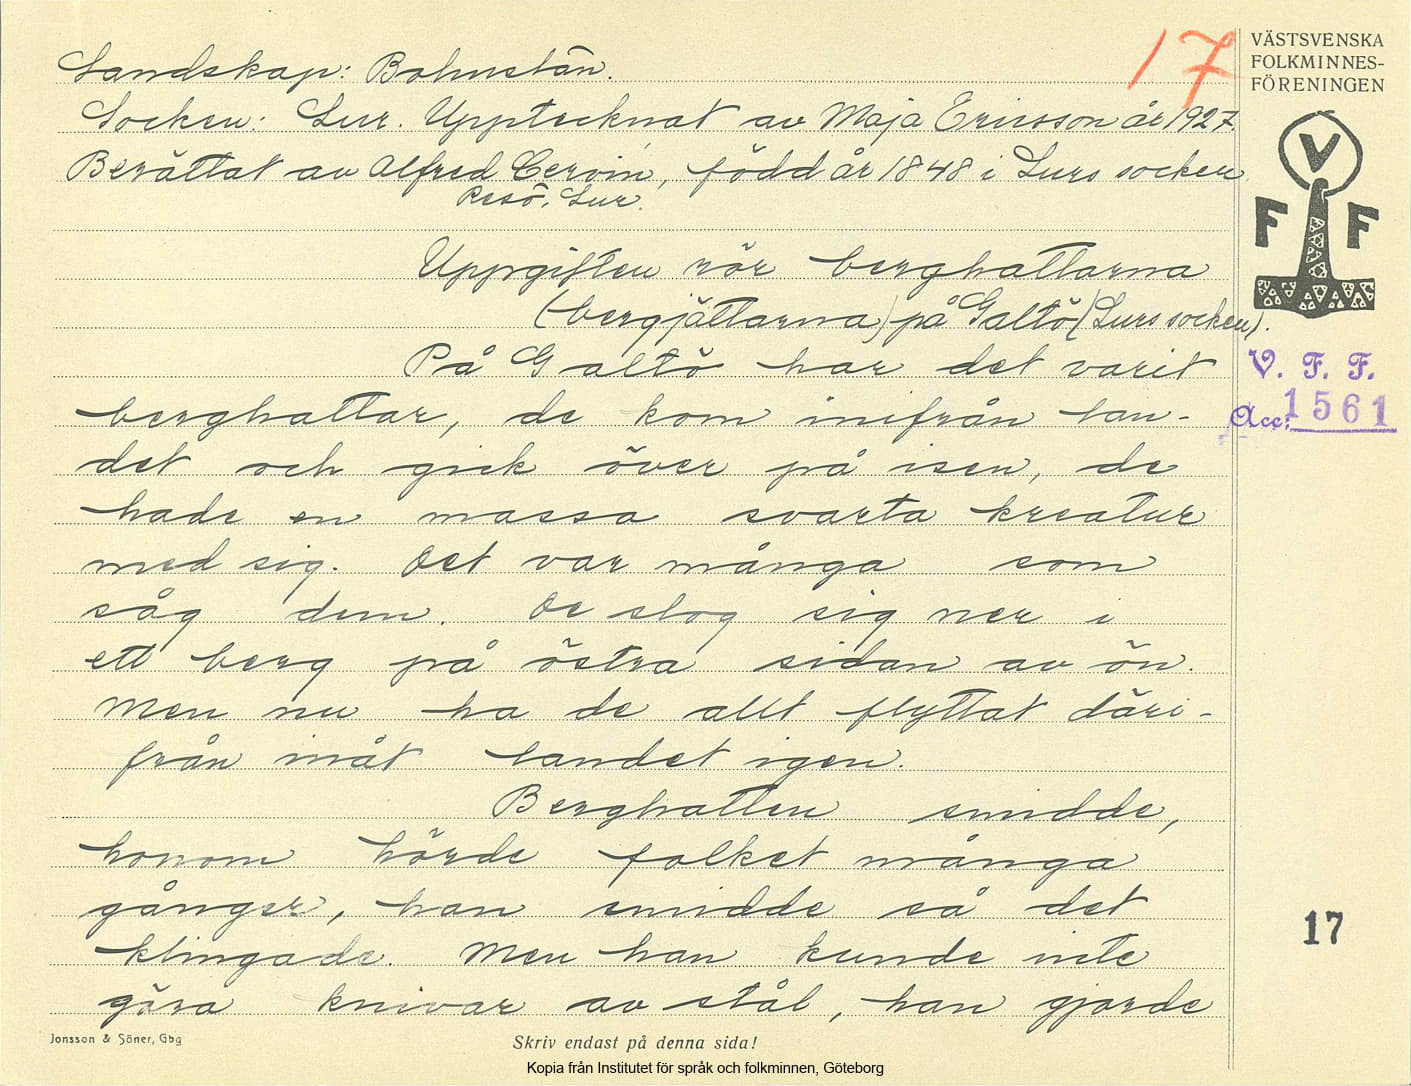 Landskap: Bohuslän.
17
VÄSTSVENSKA
FOLKMINNES-
FÖRENINGEN
Socken: Lur. Upptecknat av Maja Ericsson år 1927.
Berättat av Alfred Cervin, född år 1848 i Lurs socken
Resö, Lur.
V
F F
Uppgiften rör berghattarna
(bergjättarna) på Galtö (Lurs socken).
På Galtö har det varit
V. F. F.
Acc: 1561
berghattar, de kom inifrån lan-
det och gick över på isen, de
hade en massa svarta kreatur
med sig. Det var många som
såg dem. De slog sig ner i
ett berg på östra sidan av ön.
Men nu ha de allt flyttat däri-
från inåt landet igen.
Berghatten smidde,
honom hörde folket många
gånger, han smidde så det
17
klingade. Men han kunde inte
göra knivar av stål, han gjorde
Jonsson & Söner, Gbg
Skriv endast på denna sida!
Kopia från Institutet för språk och folkminnen, Göteborg